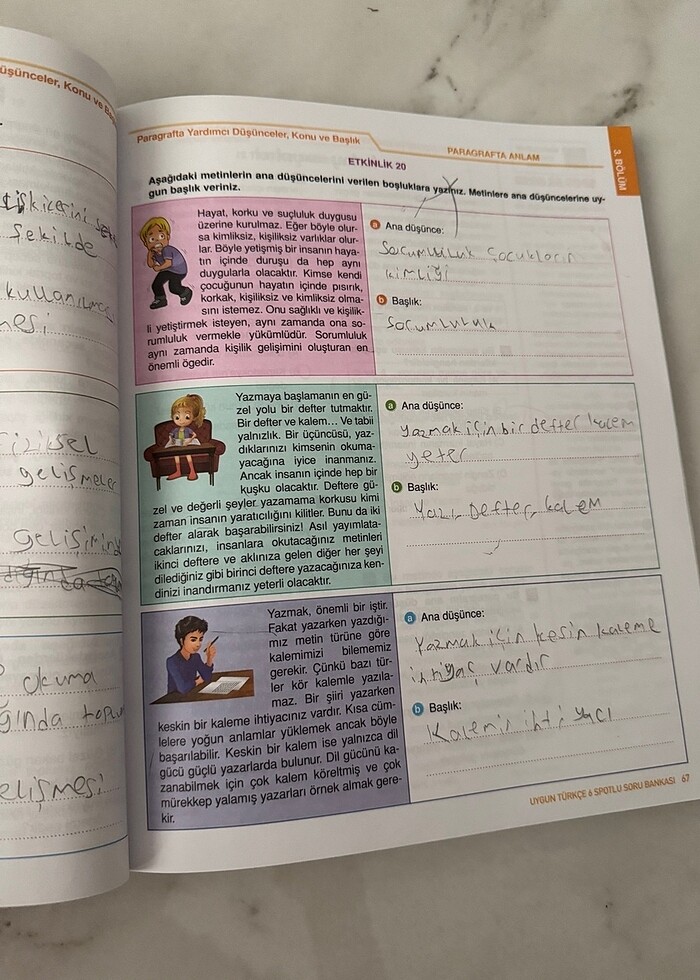 üşünceler, Konu ve Ba
şekilde
kullanılması
gelişmeler
okuma
ğında toplu
elişmesi
Paragrafta Yardımcı Düşünceler, Konu ve Başlık
PARAGRAFTA ANLAM
3. BÖLÜM
ETKİNLİK 20
Aşağıdaki metinlerin ana düşüncelerini verilen boşluklara yazınız. Metinlere ana düşüncelerine uy-
gun başlık veriniz.
Hayat, korku ve suçluluk duygusu
üzerine kurulmaz. Eğer böyle olur-
sa kimliksiz, kişiliksiz varlıklar olur-
lar. Böyle yetişmiş bir insanın haya-
tın içinde duruşu da hep aynı
duygularla olacaktır. Kimse kendi
çocuğunun hayatın içinde pısırık,
korkak, kişiliksiz ve kimliksiz olma-
sını istemez. Onu sağlıklı ve kişilik-
li yetiştirmek isteyen, aynı zamanda ona so-
rumluluk vermekle yükümlüdür. Sorumluluk
aynı zamanda kişilik gelişimini oluşturan en
önemli ögedir.
a Ana düşünce:
Sorumluluk çocukların
kimliği
b Başlık:
Sorumluluk
Yazmaya başlamanın en gü-
zel yolu bir defter tutmaktır.
Bir defter ve kalem... Ve tabii
yalnızlık. Bir üçüncüsü, yaz-
dıklarınızı kimsenin okuma-
yacağına iyice inanmanız.
Ancak insanın içinde hep bir
kuşku olacaktır. Deftere gü-
zel ve değerli şeyler yazamama korkusu kimi
zaman insanın yaratıcılığını kilitler. Bunu da iki
defter alarak başarabilirsiniz! Asıl yayımlata-
caklarınızı, insanlara okutacağınız metinleri
ikinci deftere ve aklınıza gelen diğer her şeyi
dilediğiniz gibi birinci deftere yazacağınıza ken-
dinizi inandırmanız yeterli olacaktır.
a Ana düşünce:
Yazmak için bir defter kalem
yeter
b Başlık:
Yazı, Defter, kalem
Yazmak, önemli bir iştir.
Fakat yazarken yazdığı-
mız metin türüne göre
kalemimizi bilememiz
gerekir. Çünkü bazı tür-
ler kör kalemle yazıla-
maz. Bir şiiri yazarken
keskin bir kaleme ihtiyacınız vardır. Kısa cüm-
lelere yoğun anlamlar yüklemek ancak böyle
başarılabilir. Keskin bir kalem ise yalnızca dil
gücü güçlü yazarlarda bulunur. Dil gücünü ka-
zanabilmek için çok kalem köreltmiş ve çok
mürekkep yalamış yazarları örnek almak gere-
kir.
a Ana düşünce:
Yazmak için kesin kaleme
ihtiyaç vardır
b Başlık:
Kalemin ihtiyacı
UYGUN TÜRKÇE 6 SPOTLU SORU BANKASI 67